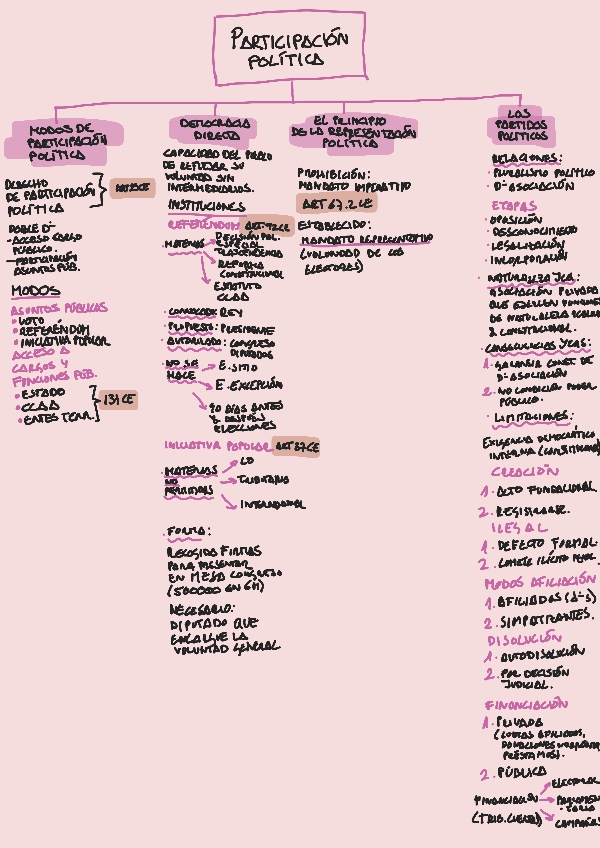 PARTICIPACIÓN
POLÍTICA
MODOS DE
PARTICIPACIÓN
POLÍTICA
DERECHO
DE PARTICIPACIÓN
POLÍTICA
DOBLE Dº
- ACCESO CARGO
PÚBLICO.
- PARTICIPACIÓN
ASUNTOS PÚB.
MODOS
ASUNTOS PÚBLICOS
• VOTO
• REFERÉNDUM
• INICIATIVA POPULAR
ACCESO A
CARGOS Y
FUNCIONES PÚB.
• ESTADO
• CCAA
• ENTES TERR.
DEMOCRACIA
DIRECTA
CAPACIDAD DEL PUEBLO
DE REFLEJAR SU
VOLUNTAD SIN
INTERMEDIARIOS.
INSTITUCIONES
REFERÉNDUM
MATERIAS
DECISIÓN POL.
ESPECIAL
TRASCENDENCIA
REFORMA
CONSTITUCIONAL
ESTATUTO
CCAA
• CONVOCADO: REY
• PROPUESTO: PRESIDENTE
• AUTORIZADO: CONGRESO
DIPUTADOS
• NO SE
HACE
E. SITIO
E. EXCEPCIÓN
90 DÍAS ANTES
Y DESPUÉS
ELECCIONES
INICIATIVA POPULAR ART 87 CE
• MATERIAS
NO
PERMITIDAS
LO
TRIBUTARIO
INTERNACIONAL
• FORMA:
RECOGIDA FIRMAS
PARA PRESENTAR
EN MESA CONGRESO
(500000 EN 6M)
NECESARIO:
DIPUTADO QUE
ENCABECE LA
VOLUNTAD GENERAL
EL PRINCIPIO
DE LA REPRESENTACIÓN
POLÍTICA
PROHIBICIÓN:
MANDATO IMPERATIVO
ART 67.2 CE
ESTABLECIDO:
MANDATO REPRESENTATIVO
(VOLUNTAD DE LOS
ELECTORES)
LOS
PARTIDOS
POLÍTICOS
RELACIONES:
• PLURALISMO POLÍTICO
• Dº ASOCIACIÓN
ETAPAS
• OPOSICIÓN
• DESCONOCIMIENTO
• LEGALIZACIÓN
• INCORPORACIÓN
• NATURALEZA JCA:
ASOCIACIÓN PRIVADA
QUE EJERCEN FUNCIONES
DE NATURALEZA
& CONSTITUCIONAL.
• CONSECUENCIAS JCAS:
1. GARANTÍA CONST. DE
Dº ASOCIACIÓN
2. NO CONDICIÓN PODER
PÚBLICO.
• LIMITACIONES:
EXIGENCIA DEMOCRÁTICO
INTERNA
CREACIÓN
1. ACTO FUNDACIONAL
2. REGISTRARSE.
ILEGAL
1. DEFECTO FORMAL.
2. COMETE ILÍCITO PENAL.
MODOS AFILIACIÓN
1. AFILIADOS
2. SIMPATIZANTES.
DISOLUCIÓN
1. AUTODISOLUCIÓN
2. POR DECISIÓN
JUDICIAL.
FINANCIACIÓN
1. PRIVADA
(CUOTAS AFILIADOS,
DONACIONES
PRÉSTAMOS).
2. PÚBLICA
FINANCIACIÓN
(TRIB. CUENTAS)
ELECTORAL
CAMPAÑAS